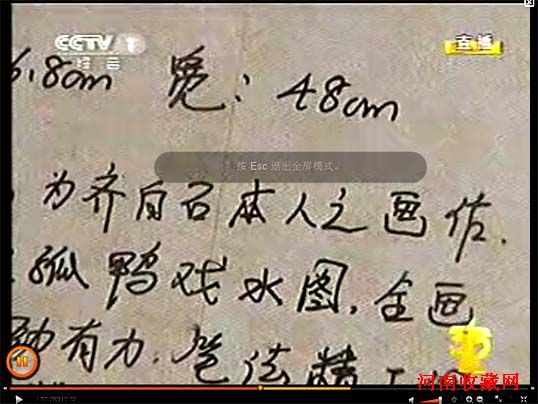 CCTV 1
综合
6.8cm 宽：48cm
按 Esc 退出全屏模式。
为齐白石本人之画作.
孤鸭戏水图.全画
劲有力.笔法精
河南收藏网